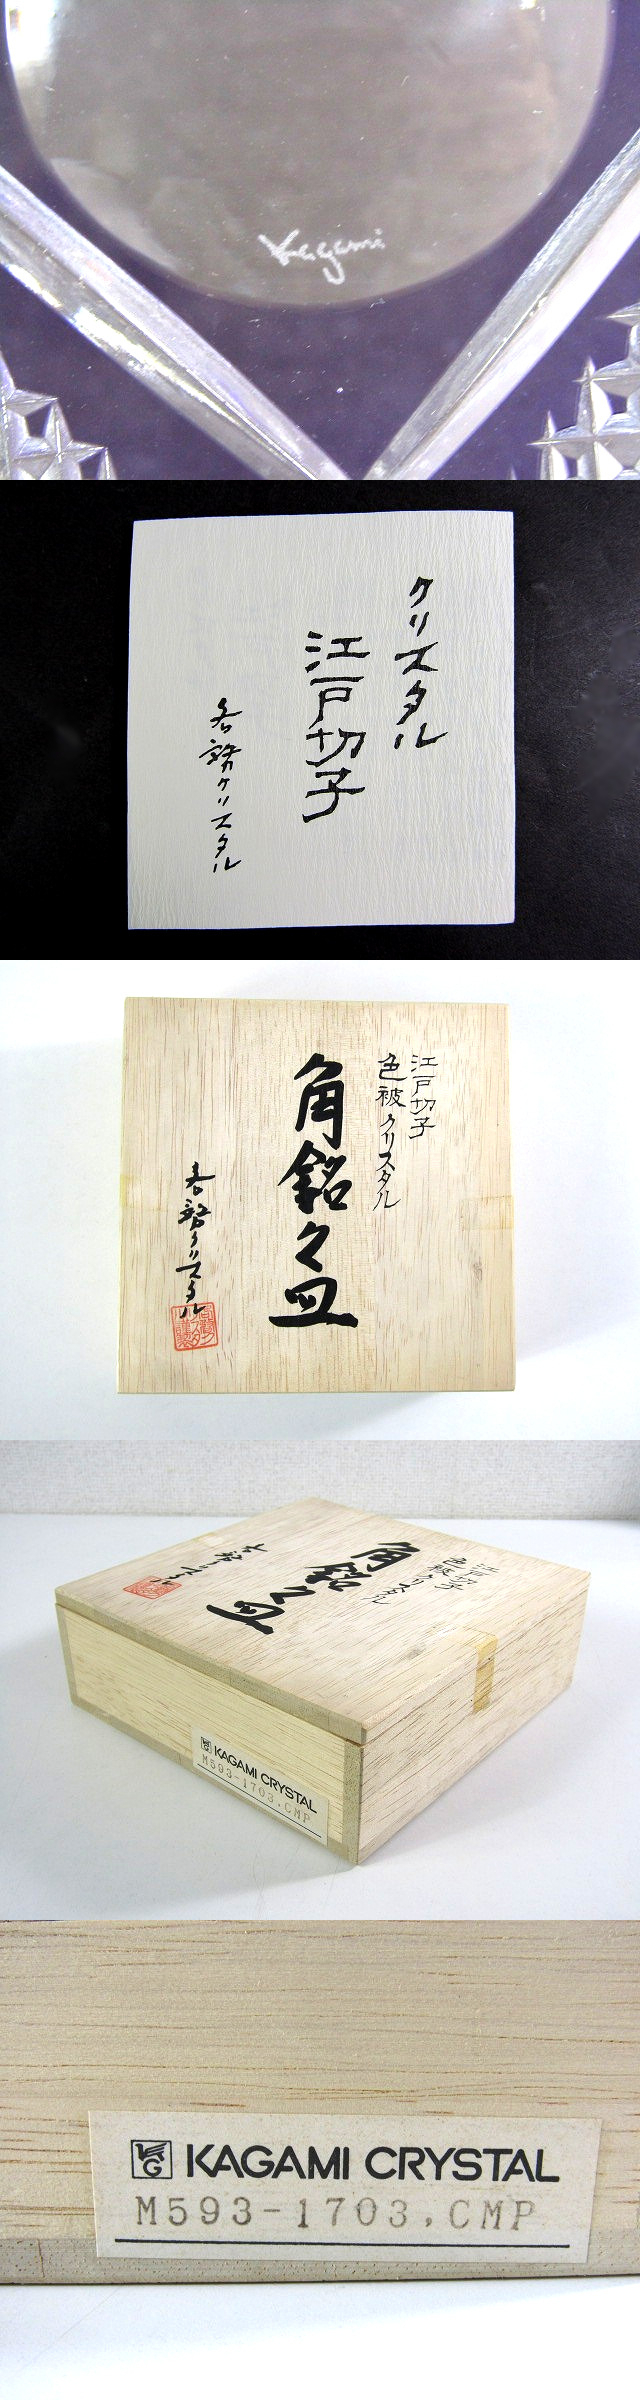 Kagami
クリスタル
江戸切子
各務クリスタル
江戸切子
色被クリスタル
角銘々皿
各務クリスタル
江戸切子
色被クリスタル
角銘々皿
各務クリスタル
KAGAMI CRYSTAL
M593-1703.CMP
KAGAMI CRYSTAL
M593-1703.CMP